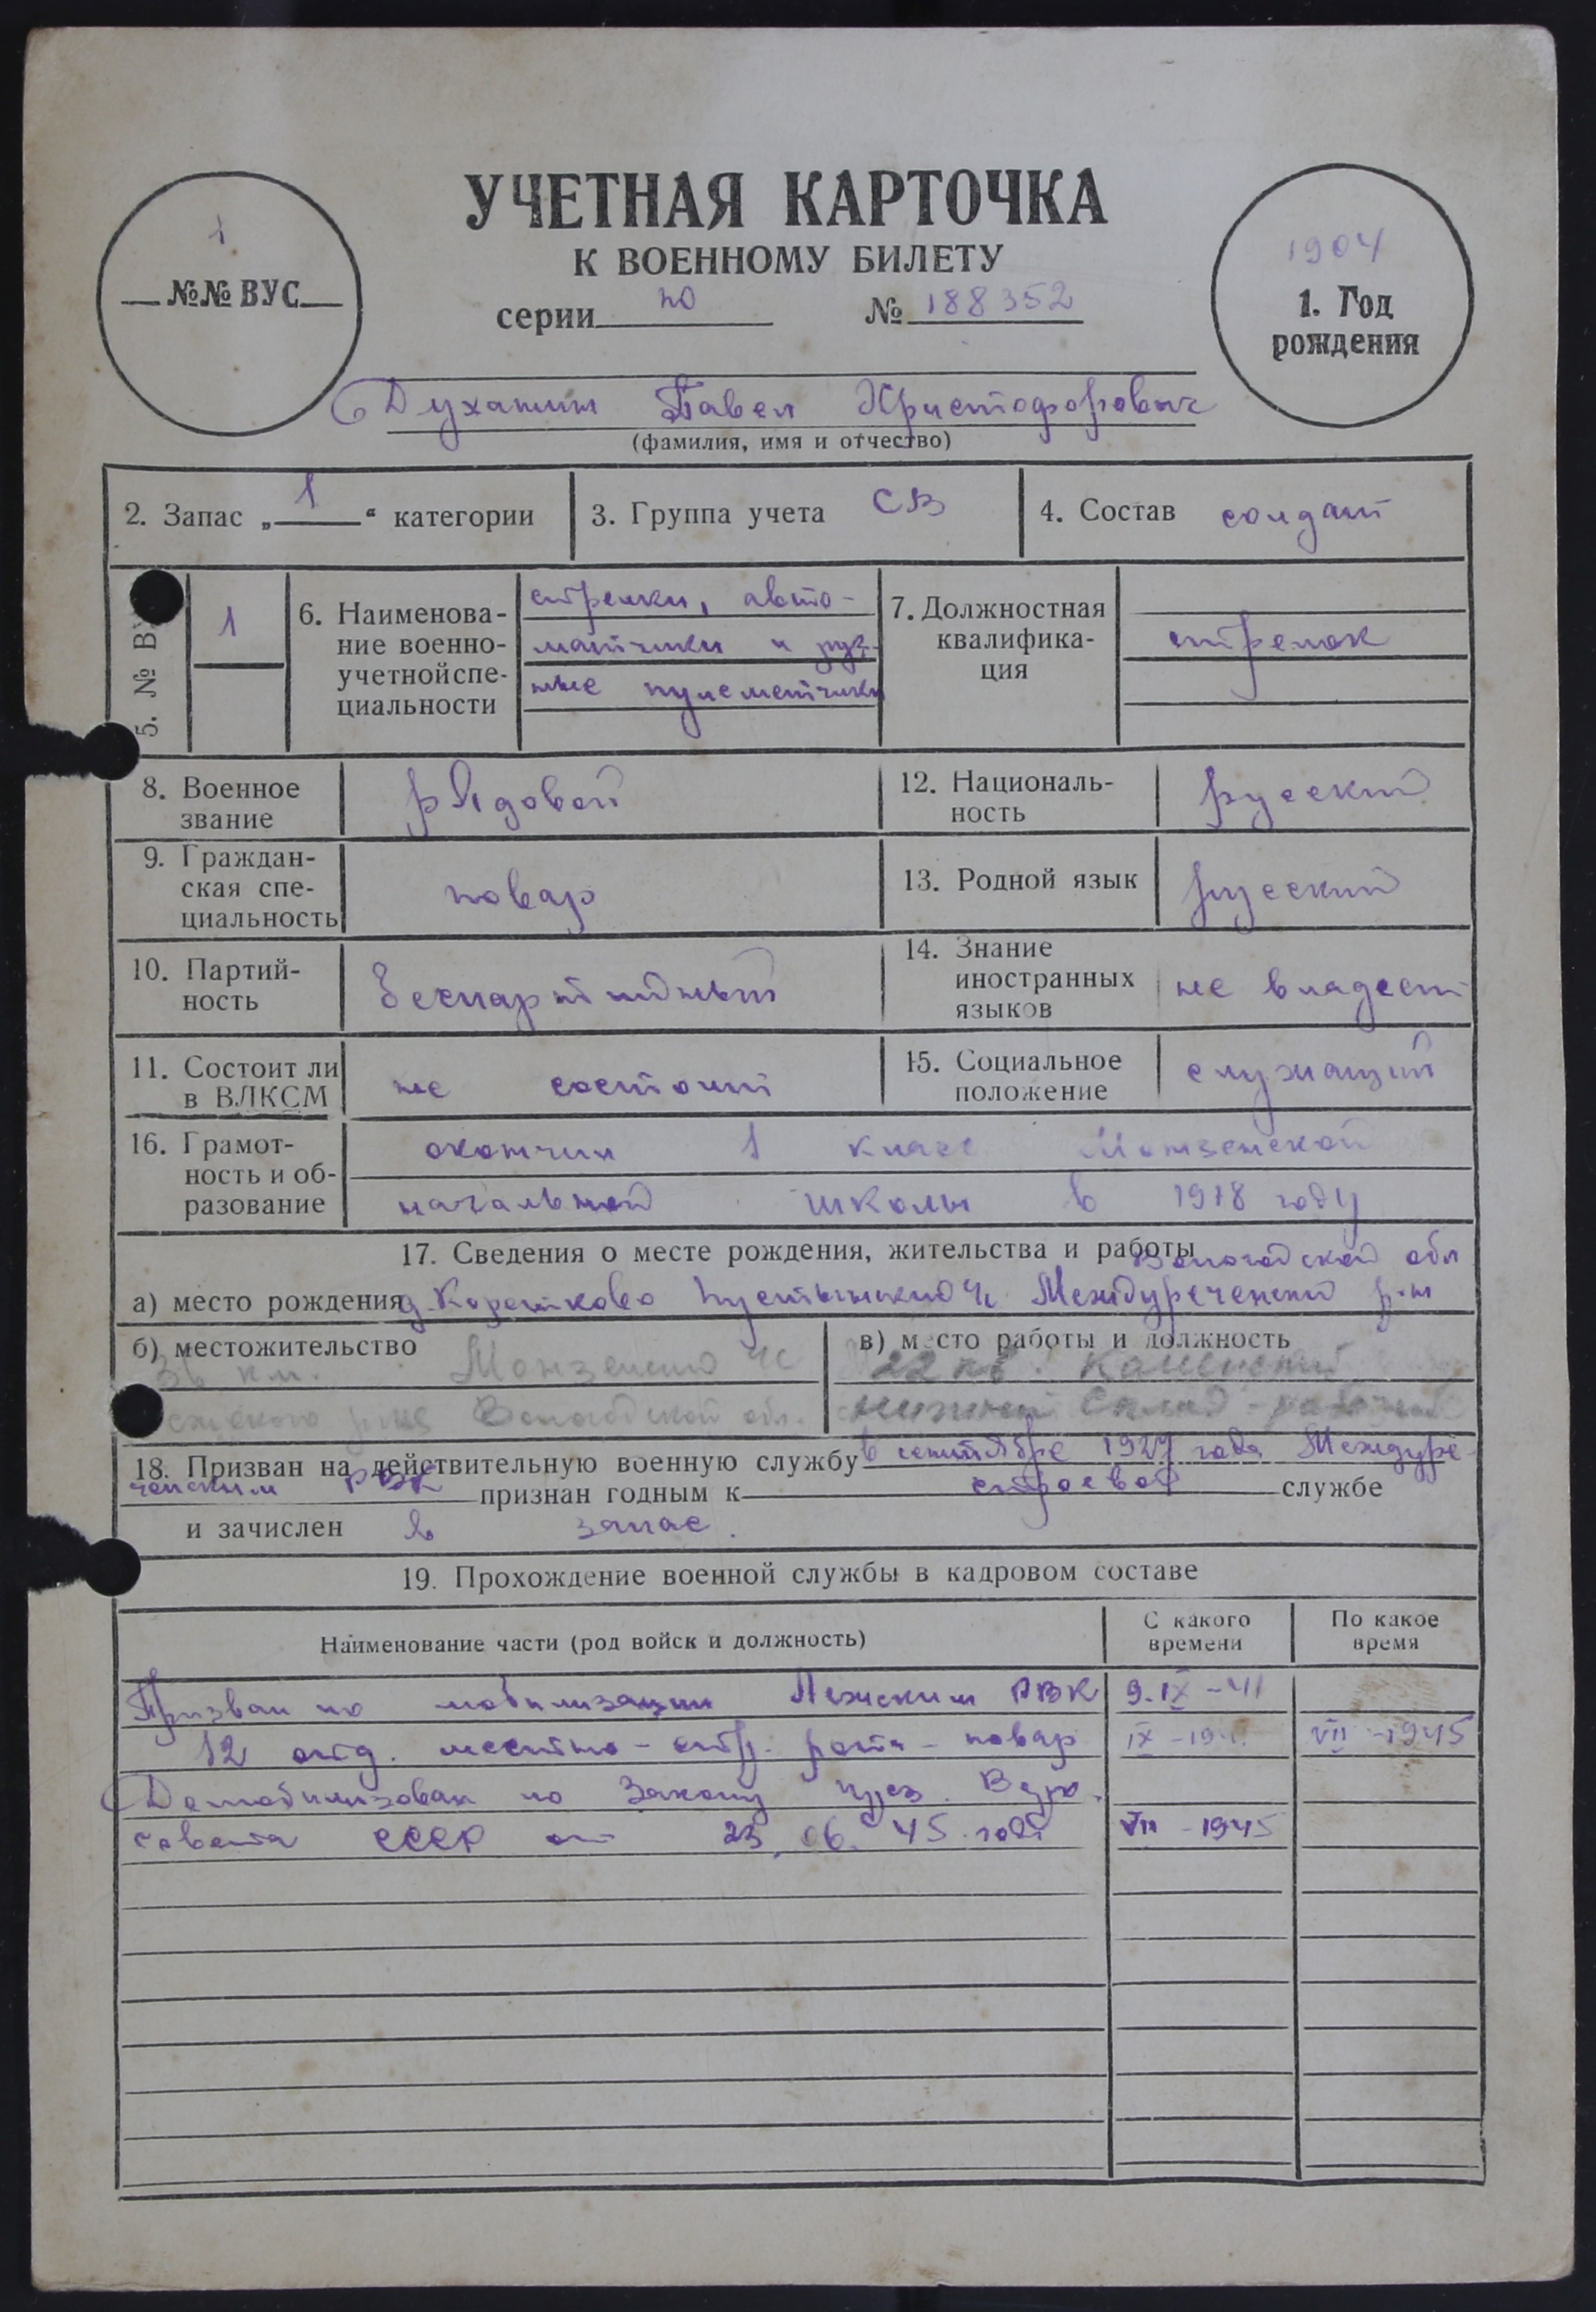 УЧЕТНАЯ КАРТОЧКА
К ВОЕННОМУ БИЛЕТУ
серии ПО № 188352
1
№№ ВУС
1904
1. Год
рождения
Духанин Павел Христофорович
(фамилия, имя и отчество)
2. Запас „ 1 “ категории
3. Группа учета СВ
4. Состав солдат
5. № В
1
6. Наименова-
ние военно-
учетной спе-
циальности
стрелки, авто-
матчики и руч-
ные пулеметчики
7. Должностная
квалифика-
ция
стрелок
8. Военное
звание
рядовой
12. Националь-
ность
русский
9. Граждан-
ская спе-
циальность
повар
13. Родной язык
русский
10. Партий-
ность
беспартийный
14. Знание
иностранных
языков
не владеет
11. Состоит ли
в ВЛКСМ
не состоит
15. Социальное
положение
служащий
16. Грамот-
ность и об-
разование
окончил 1 класс Монзенской
начальной школы в 1918 году
17. Сведения о месте рождения, жительства и работы
Вологодской обл
а) место рождения д. Междуреченский р-н
б) местожительство
км. Монзенский ЧС
Вологодской обл.
в) место работы и должность
22 кв.
нижний склад - рабочий
18. Призван на действительную военную службу в сентябре 1927 года Междуре-
ченским РВК признан годным к строевой службе
и зачислен в запас.
19. Прохождение военной службы в кадровом составе
Наименование части (род войск и должность)
С какого
времени
По какое
время
Призван по мобилизации Лежским РВК 9.IX-41
12 отд. местно-стр. рота - повар IX - VII - 1945
Демобилизован по Закону През. Верх.
совета СССР от 23.06.45 года VII - 1945